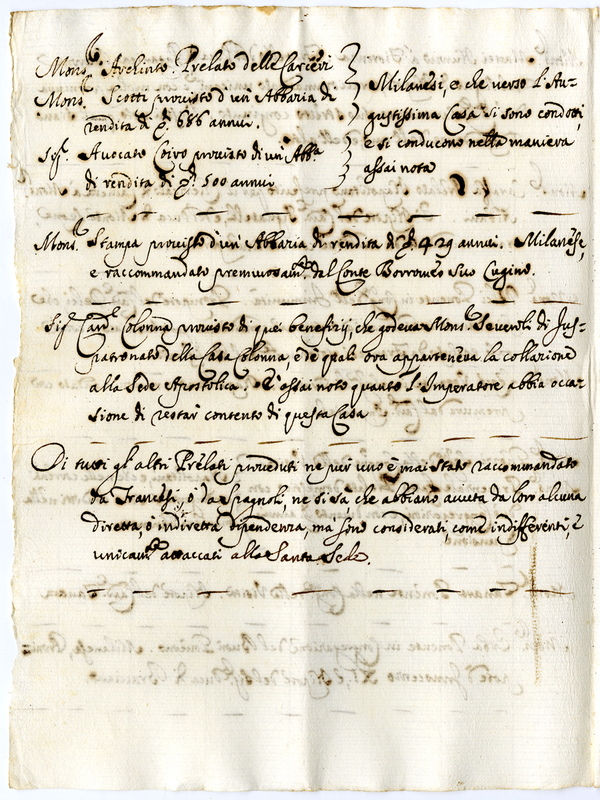 Mons.r Archinto Prelato delle Carceri
Mons.r Scotti provisto d'un Abbazia di
rendita di 686 annui.
Sig.r Avocato Coiro provisto di un Abb.a
di rendita di 500 annui
Milanesi, e che verso l'Au-
gustissima Casa si sono condotti,
e si conducono nella maniera
assai nota
Mons.r Stampa provisto d'un Abbazia di rendita di 429 annui. Milanese,
e raccommandato premurosam.te dal Conte Borromeo Suo Cugino.
Sig.r Card.l Colonna provisto di quei beneficij, che godeva Mons.r Severoli di Jus-
patronato della Casa Colonna, e dè quali ora apparteneva la collazione
alla Sede Apostolica. E' assai noto quanto l'Imperatore abbia occa-
sione di restar contento di questa Casa
Di tutti gl'altri Prelati proveduti ne pur uno è mai stato raccommandato
da Francesi, ò da Spagnoli, ne si sà, che abbiano avuta da loro alcuna
diretta, ò indiretta dipendenza, mà sono considerati, come indifferenti, è
unicam.te attaccati alla Santa Sede.